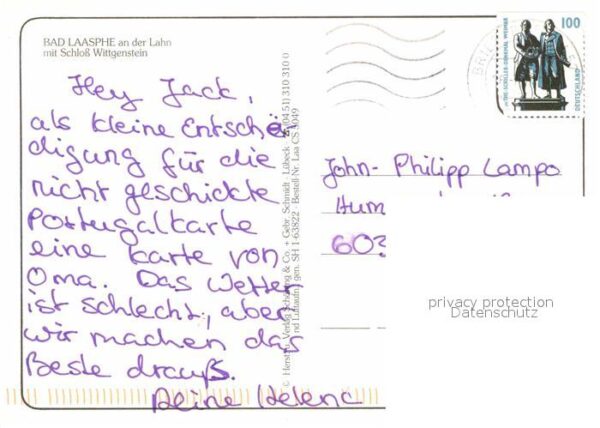 BAD LAASPHE an der Lahn
mit Schloß Wittgenstein
Hey Jack,
als kleine Entschä-
digung für die
nicht geschickte
Portugalkarte
eine Karte von
Oma. Das Wetter
ist schlecht, aber
wir machen das
Beste drauß.
Deine Helene
© Herst. u. Verlag Schöning & Co. + Gebr. Schmidt · Lübeck · (0451) 310 310 0
gen. SH 1-63822 · Bestell-Nr. Laa CS 3049
100
GOETHE-SCHILLER-DENKMAL WEIMAR
DEUTSCHLAND
BRIE
John-Philipp Lampo
Hum
603
privacy protection
Datenschutz